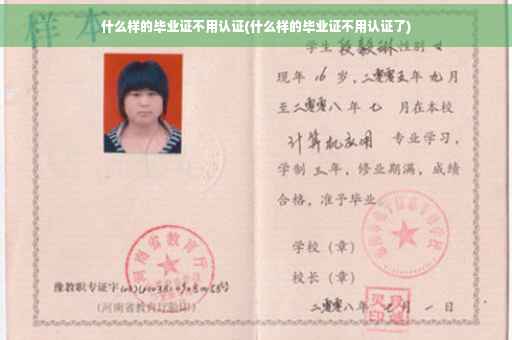 什么样的毕业证不用认证(什么样的毕业证不用认证了)
样本
学生段毅琳性别女
现年16岁，二零零五年九月
至二零零八年七月在本校
计算机应用 专业学习，
学制三年，修业期满，成绩
合格，准予毕业。
学校（章）
校长（章）
二零零八年七月一日
河南省教育厅
豫教职专证字
(河南省教育厅验印)